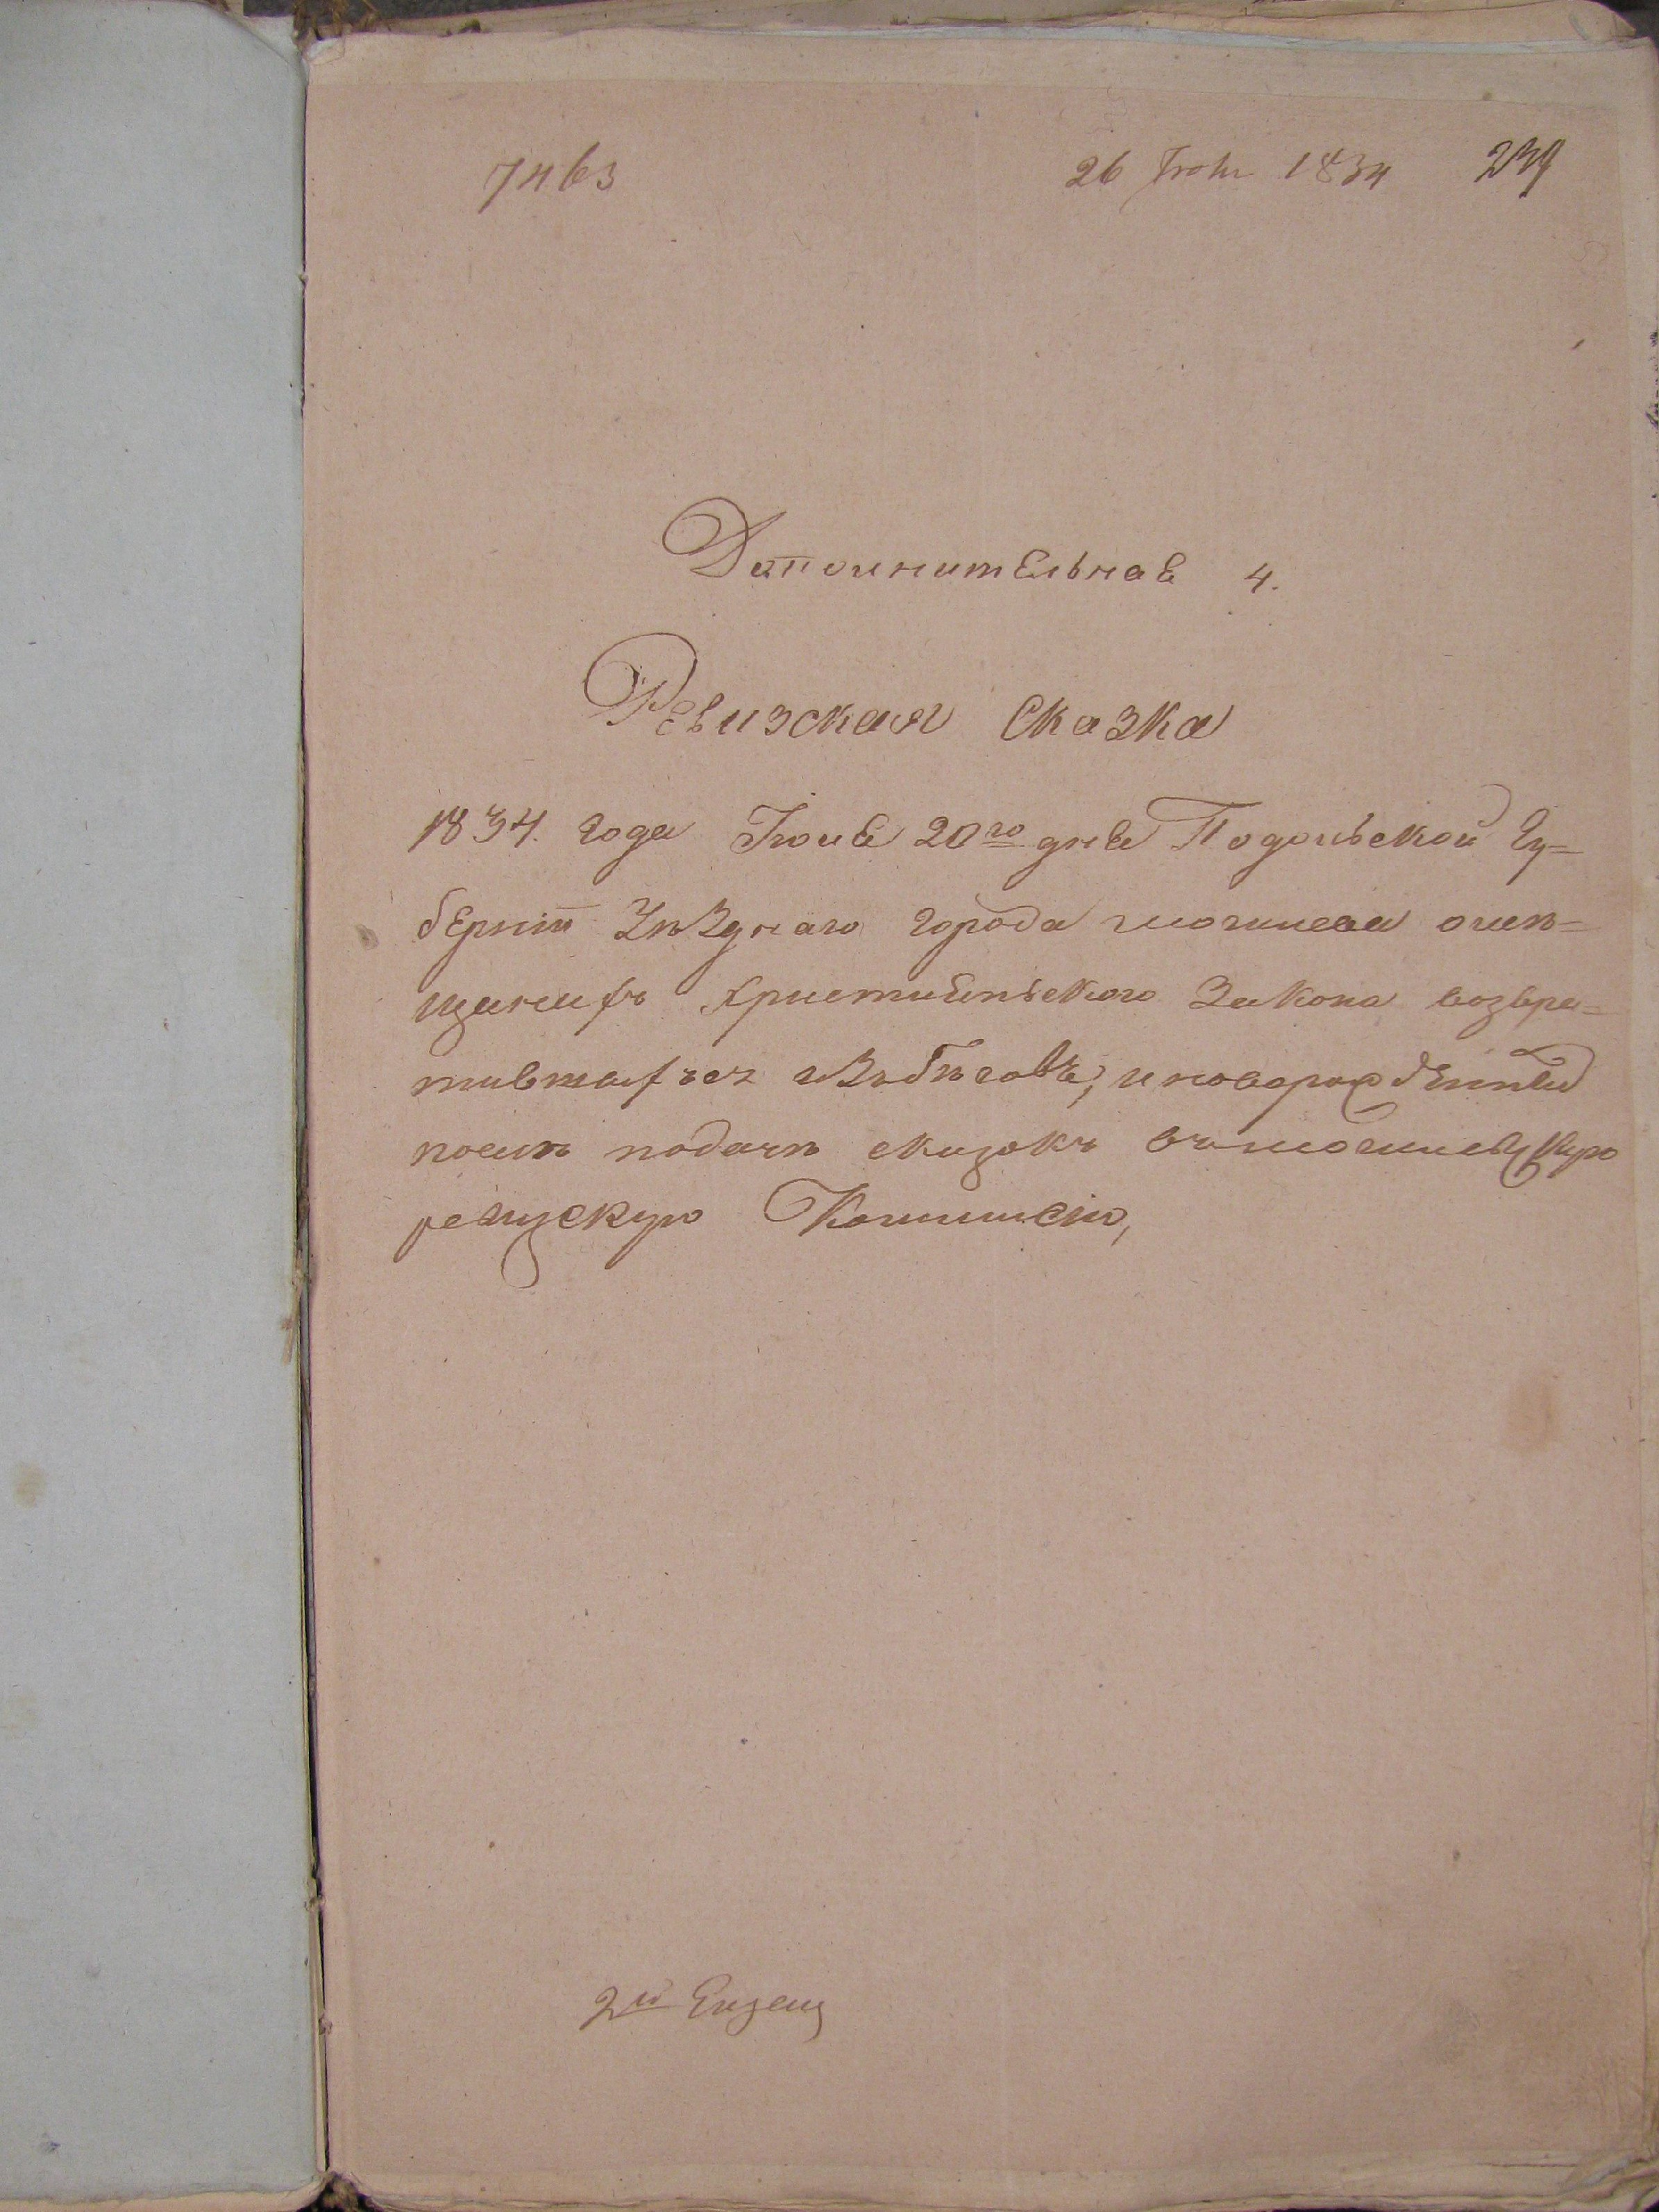 7463 26 Iюля 1834 239
Дополнительная 4.
Ревизская Сказка
1834. года Iюля 20го дня Подольской Гу=
бернiи Уѣзднаго города могилева о мѣ=
щанихъ християньского Закона возвра=
тившихъся изъбѣговъ, и новорожденныхъ
послѣ подачи сказокъ въ могилевскую
ревизскую Коммисiю,
2й Екземп